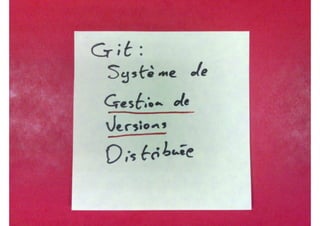 Git :
Système de
Gestion de
Versions
Distribuée